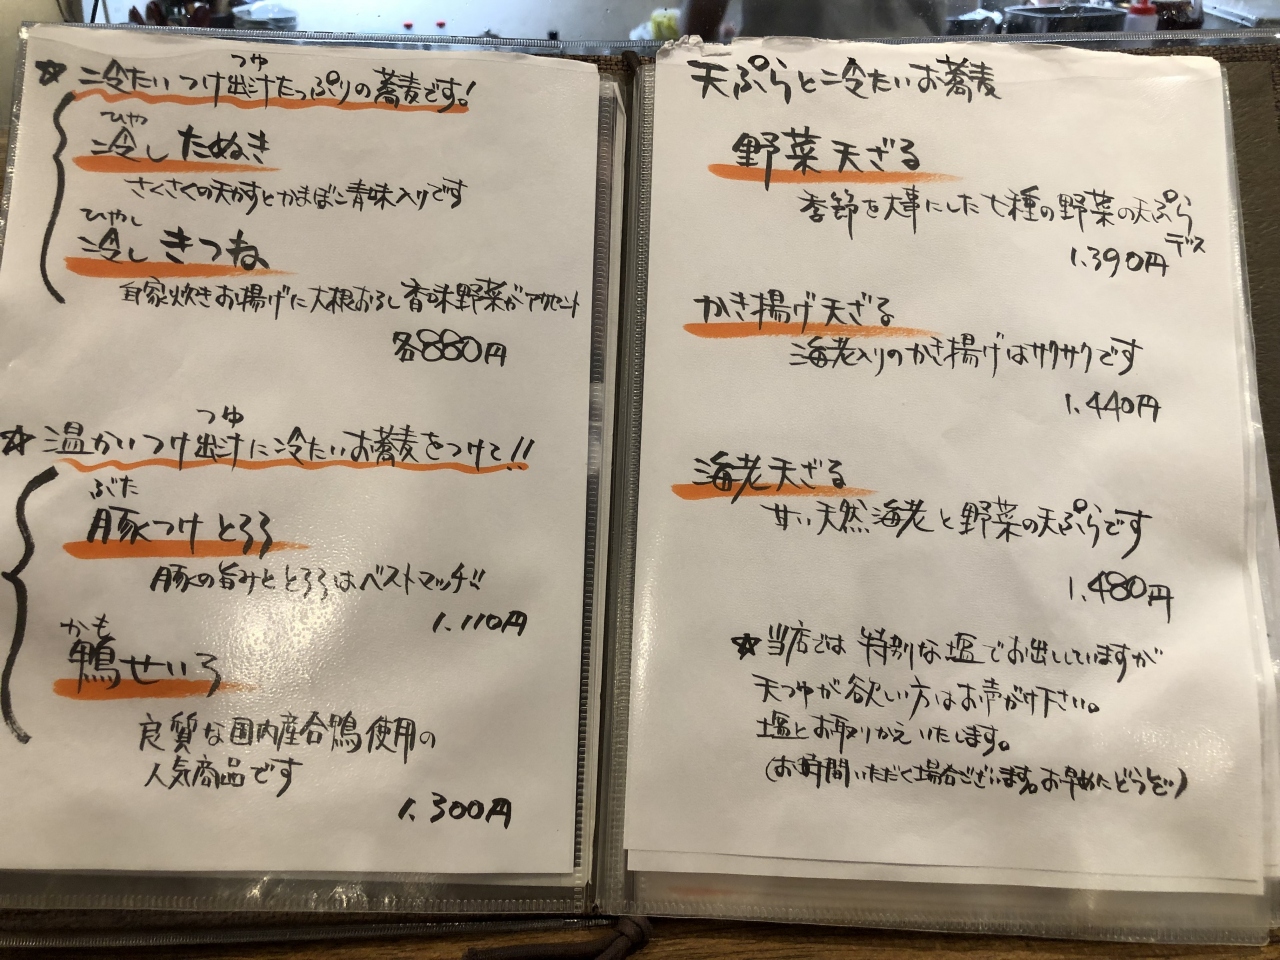 ☆冷たいつけ出汁たっぷりの蕎麦です!
つゆ
ひや
冷したぬき
さくさくの天かすとかまぼこ青味入りです
ひやし
冷しきつね
自家炊きお揚げに大根おろし香味野菜がアクセント
各880円
つゆ
☆温かいつけ出汁に冷たいお蕎麦をつけて!!
ぶた
豚つけとろろ
豚の旨みととろろはベストマッチ!!
1.110円
かも
鴨せいろ
良質な国内産合鴨使用の
人気商品です
1.300円
天ぷらと冷たいお蕎麦
野菜天ざる
季節を大事にした七種の野菜の天ぷら
デス
1.390円
かき揚げ天ざる
海老入りのかき揚げはサクサクです
1.440円
海老天ざる
甘い天然海老と野菜の天ぷらです
1.480円
☆当店では特別な塩でお出ししていますが
天つゆが欲しい方はお声がけ下さい。
塩とお取りかえいたします。
(お時間いただく場合ございます。お早めにどうぞ)